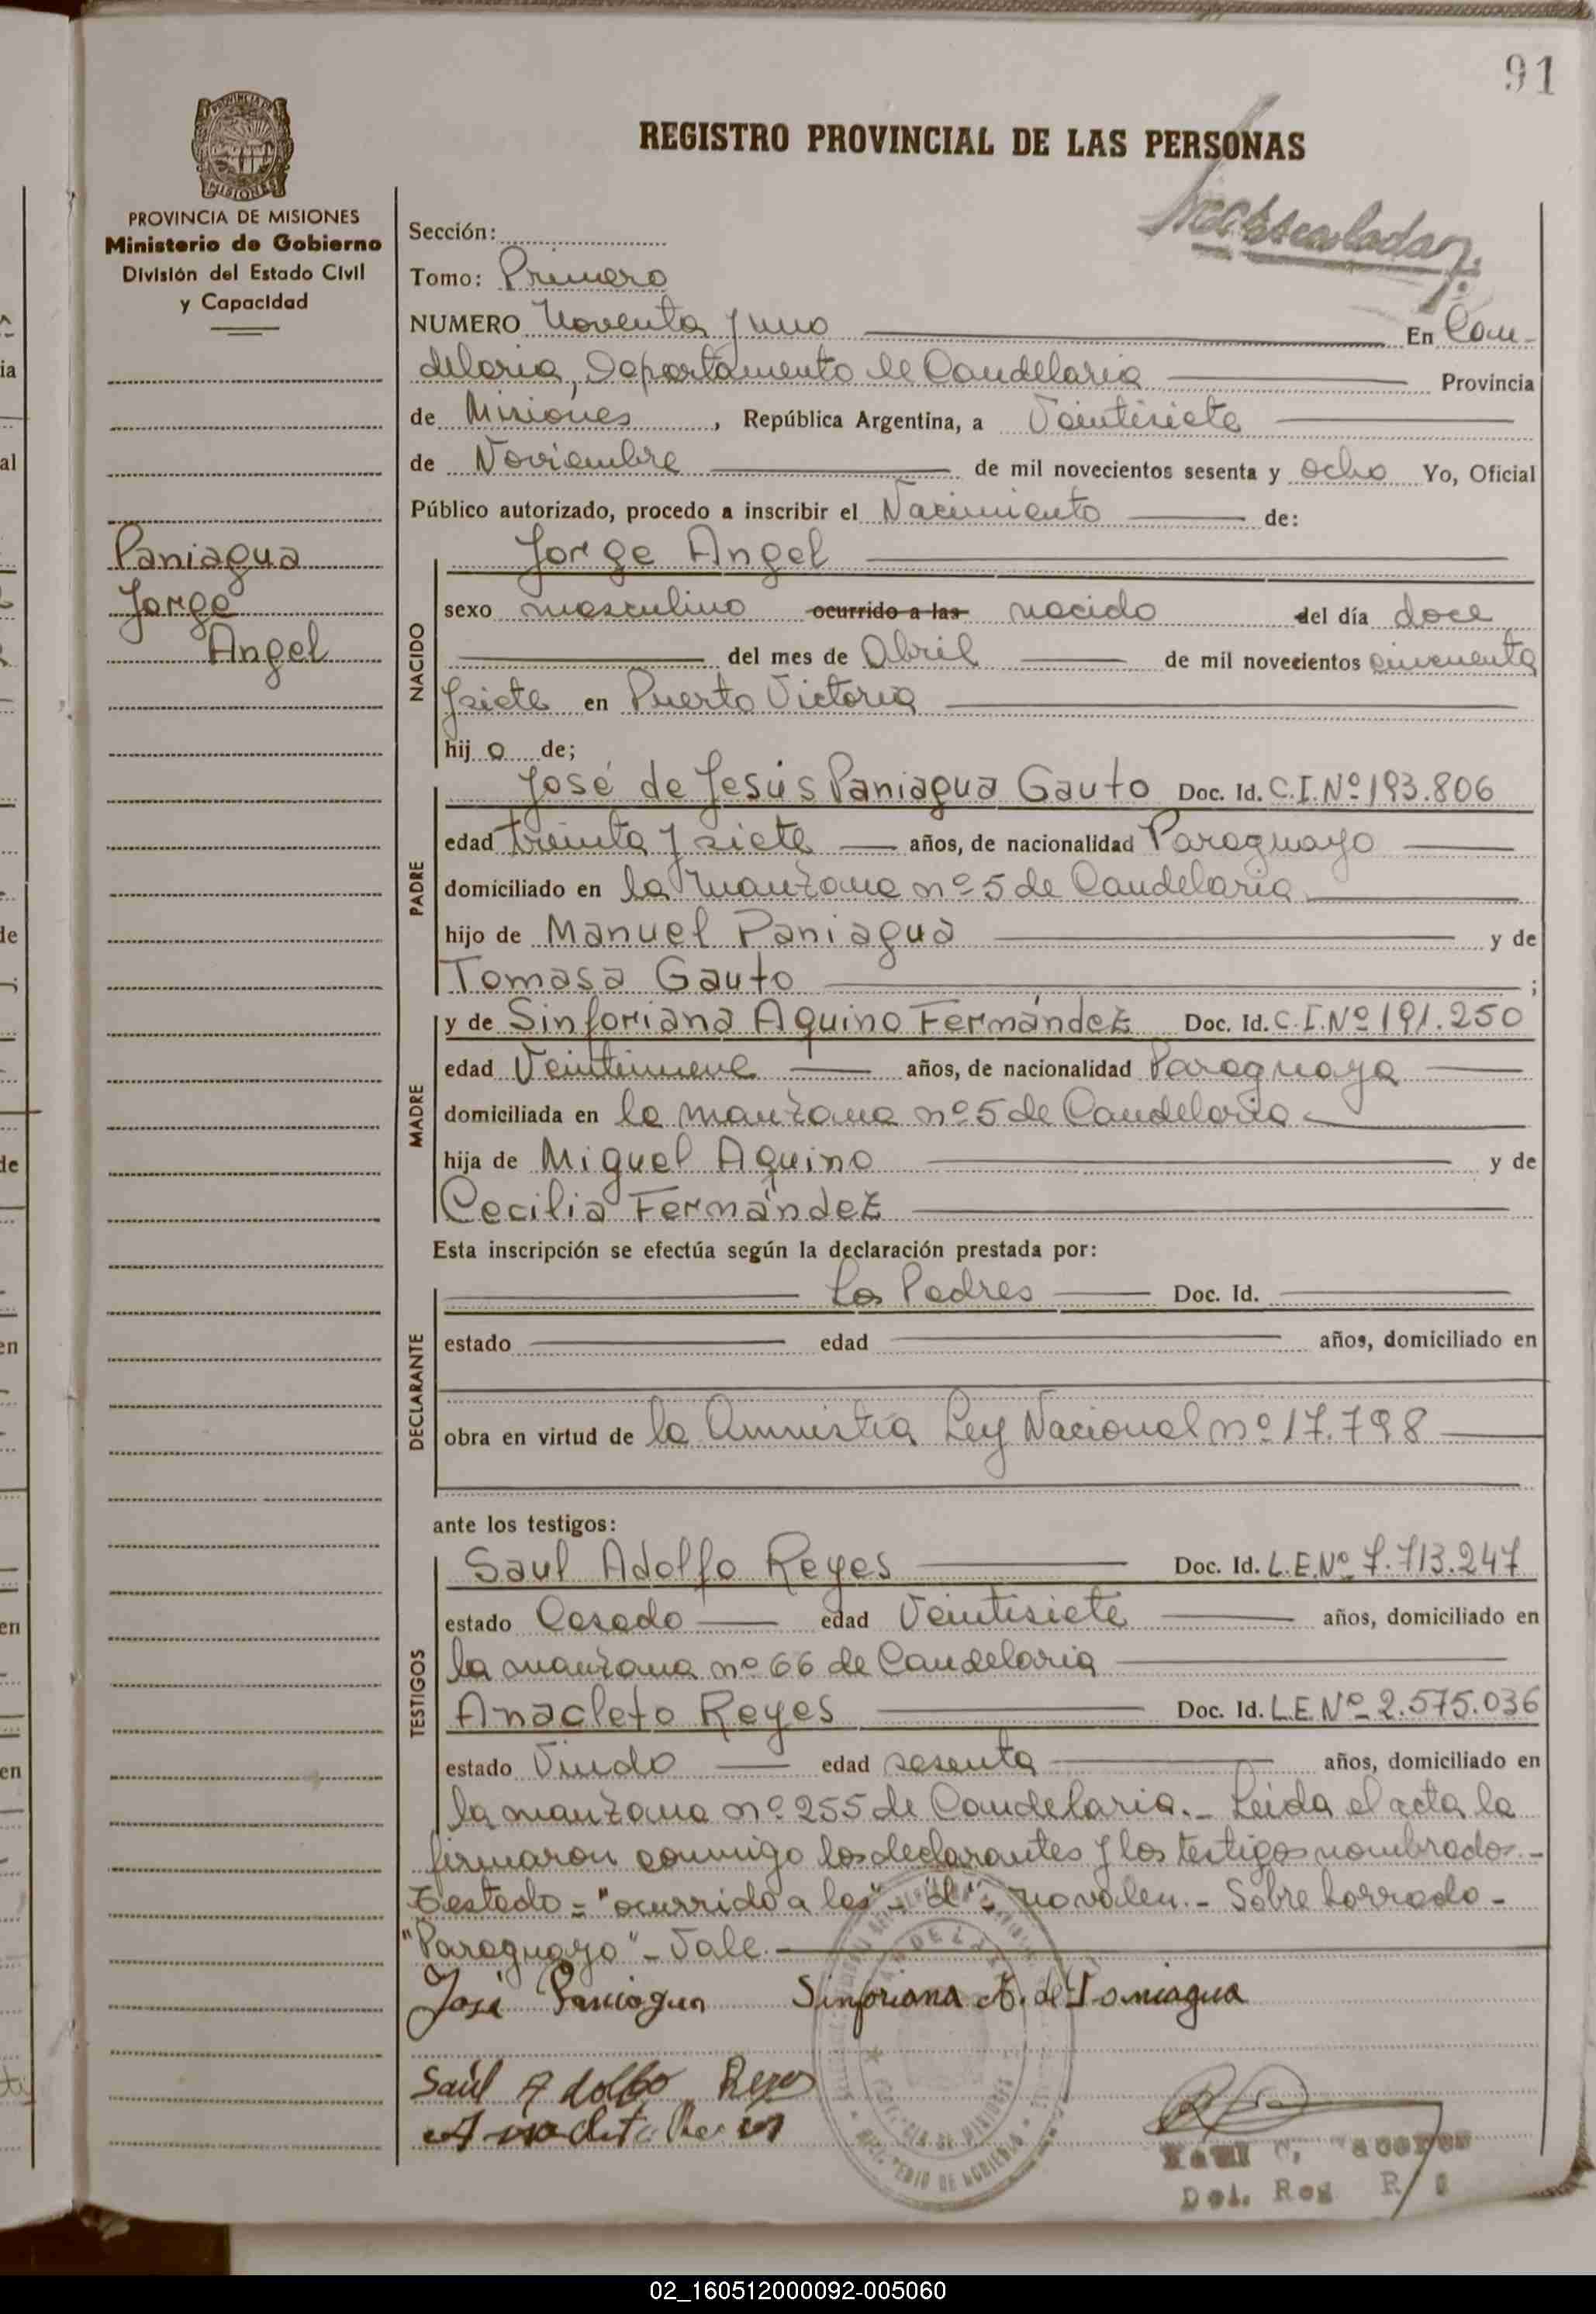 91
REGISTRO PROVINCIAL DE LAS PERSONAS
PROVINCIA DE MISIONES
Ministerio de Gobierno
División del Estado Civil
y Capacidad
Paniagua
Jorge
Angel
Sección:
Tomo: Primero
NUMERO Noventa y uno En Can-
delaria, Departamento de Candelaria Provincia
de Misiones, República Argentina, a Veintisiete
de Noviembre de mil novecientos sesenta y ocho Yo, Oficial
Público autorizado, procedo a inscribir el Nacimiento de:
NACIDO
Jorge Angel
sexo masculino ocurrido a las nacido del día doce
del mes de Abril de mil novecientos cincuenta
y siete en Puerto Victoria
hijo de;
PADRE
José de Jesús Paniagua Gauto Doc. Id. C.I.Nº 193.806
edad treinta y siete años, de nacionalidad Paraguayo
domiciliado en la manzana nº 5 de Candelaria
hijo de Manuel Paniagua y de
Tomasa Gauto ;
MADRE
y de Sinforiana Aquino Fernández Doc. Id. C.I.Nº 191.250
edad Veintinueve años, de nacionalidad Paraguaya
domiciliada en la manzana nº 5 de Candelaria
hija de Miguel Aquino y de
Cecilia Fernández
Esta inscripción se efectúa según la declaración prestada por:
DECLARANTE
Los Padres Doc. Id.
estado edad años, domiciliado en
obra en virtud de la Amnistía Ley Nacional nº 17.798
ante los testigos:
TESTIGOS
Saul Adolfo Reyes Doc. Id. L.E.Nº 7.713.247
estado Casado edad Veintisiete años, domiciliado en
la manzana nº 66 de Candelaria
Anacleto Reyes Doc. Id. L.E.Nº 2.575.036
estado Viudo edad sesenta años, domiciliado en
la manzana nº 255 de Candelaria.- Leída el acta la
firmaron conmigo los declarantes y los testigos nombrados.-
Testado = "ocurrido a las" - "d"; no valen.- Sobre borrado -
"Paraguayo" - Vale.-
José Paniagua Sinforiana A. de Paniagua
Saúl Adolfo Reyes
Anacleto Reyes
Del. Reg
02_160512000092-005060